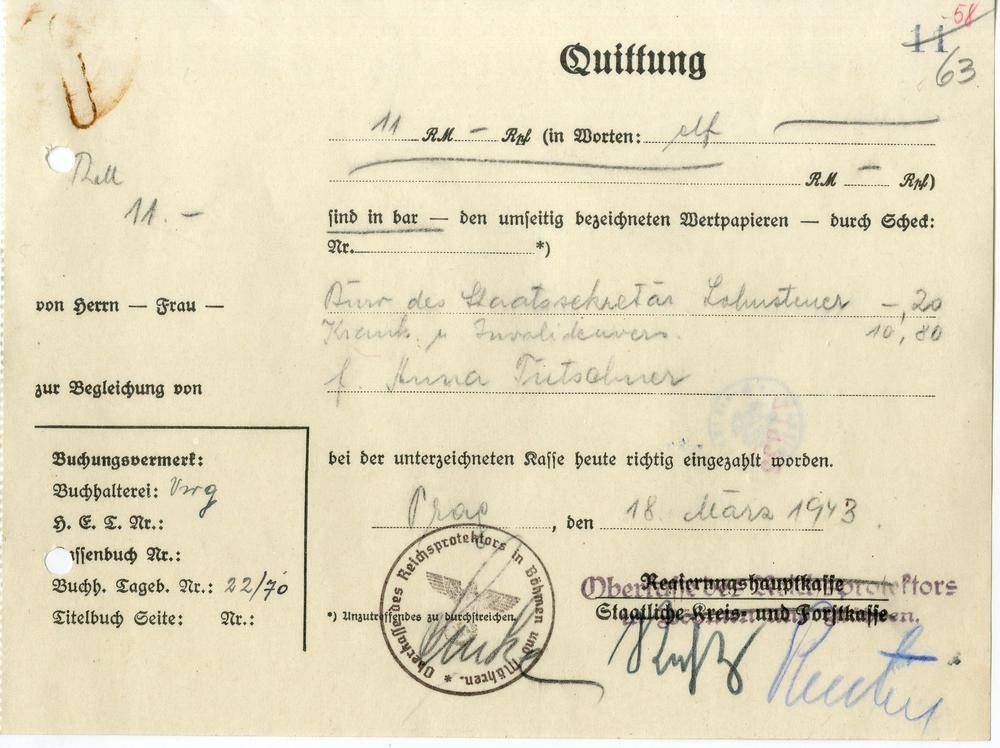 58
11
63
Quittung
11 RM — Rpf (in Worten: elf
RM — Rpf)
11.—
sind in bar — den umseitig bezeichneten Wertpapieren — durch Scheck:
Nr. *)
von Herrn — Frau — Büro des Staatssekretär Lohnsteuer —,20
Krank. u Invalidenvers. 10,80
zur Begleichung von f. Anna Tutschner
bei der unterzeichneten Kasse heute richtig eingezahlt worden.
Prag, den 18. März 1943.
Buchungsvermerk:
Buchhalterei:
H. E. T. Nr.:
assenbuch Nr.:
Buchh. Tageb. Nr.: 22/70
Titelbuch Seite: Nr.:
*) Unzutreffendes zu durchstreichen.
Oberkasse des Reichsprotektors in Böhmen und Mähren. *
Oberkasse des Reichsprotektors
Regierungshauptkasse
Staatliche Kreis- und Forstkasse